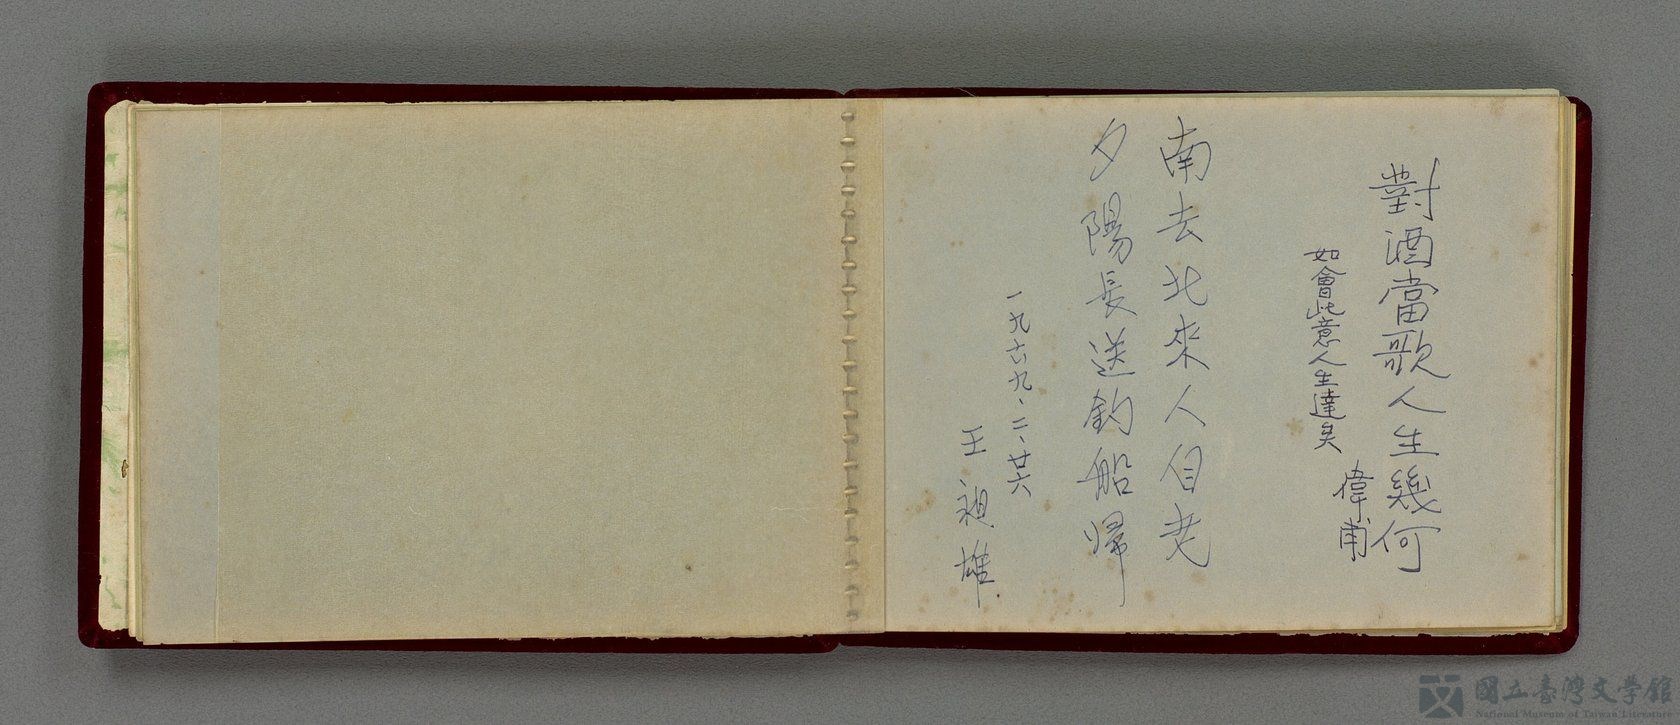 對酒當歌人生幾何
如會此意人生達矣
偉甫
南去北來人自老
夕陽長送釣船歸
一九六九、二、廿六
王昶雄
國立臺灣文學館
National Museum of Taiwan Literature